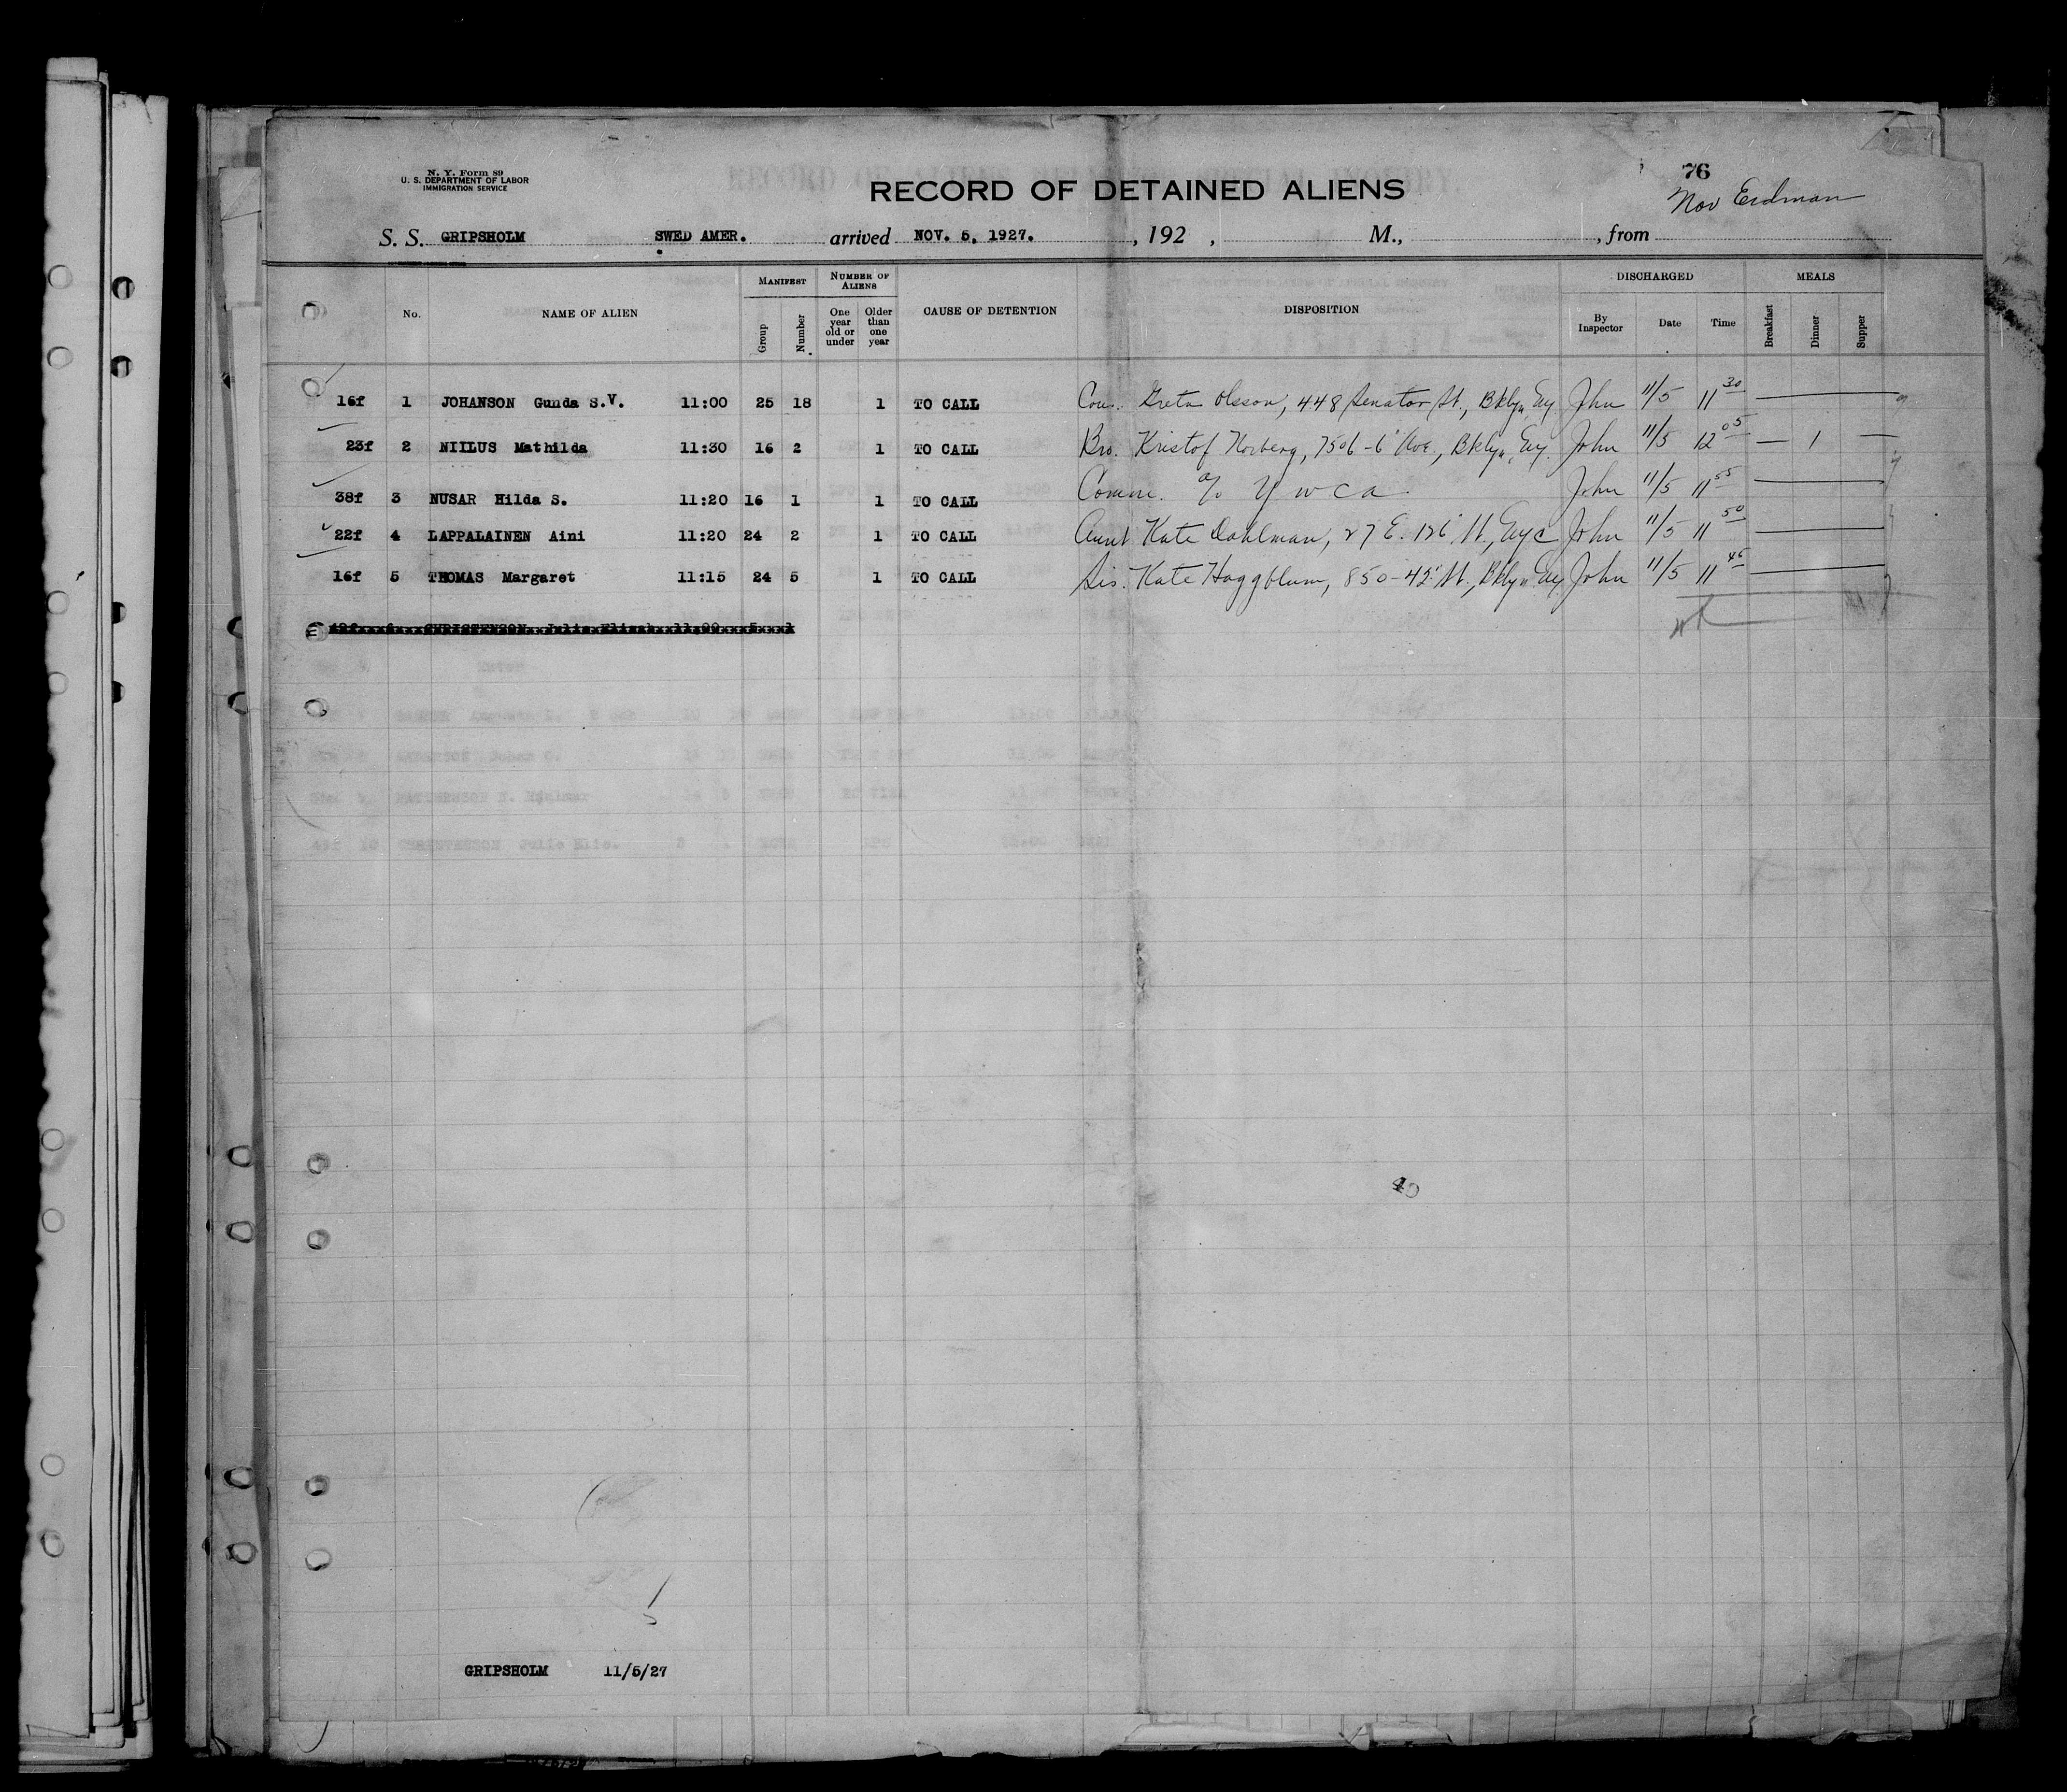 N. Y. Form 89
U. S. DEPARTMENT OF LABOR
IMMIGRATION SERVICE
76
RECORD OF DETAINED ALIENS
Nov Erdman
S. S. GRIPSHOLM SWED AMER. arrived NOV. 5, 1927. , 192 , M., , from
No. NAME OF ALIEN MANIFEST Group Number NUMBER OF ALIENS One year old or under Older than one year CAUSE OF DETENTION DISPOSITION DISCHARGED By Inspector Date Time MEALS Breakfast Dinner Supper
16f 1 JOHANSON Gunda S.V. 11:00 25 18 1 TO CALL Cous. Greta Olsson, 448 Senator St., Bklyn, Ny John 11/5 11 30
23f 2 NIILUS Mathilda 11:30 16 2 1 TO CALL Bro. Kristof Norberg, 7506-6" Ave., Bklyn, Ny. John 11/5 12 05 — 1 —
38f 3 NUSAR Hilda S. 11:20 16 1 1 TO CALL Comm. % Y W C A John 11/5 11 55
22f 4 LAPPALAINEN Aini 11:20 24 2 1 TO CALL Aunt Kate Dahlman, 27 E. 126" St., Nyc John 11/5 11 50
16f 5 THOMAS Margaret 11:15 24 5 1 TO CALL Sis. Kate Haggblum, 850-42" St., Bklyn Ny. John 11/5 11 45
CHRISTENSON Julie 11:00 5 1
GRIPSHOLM 11/5/27